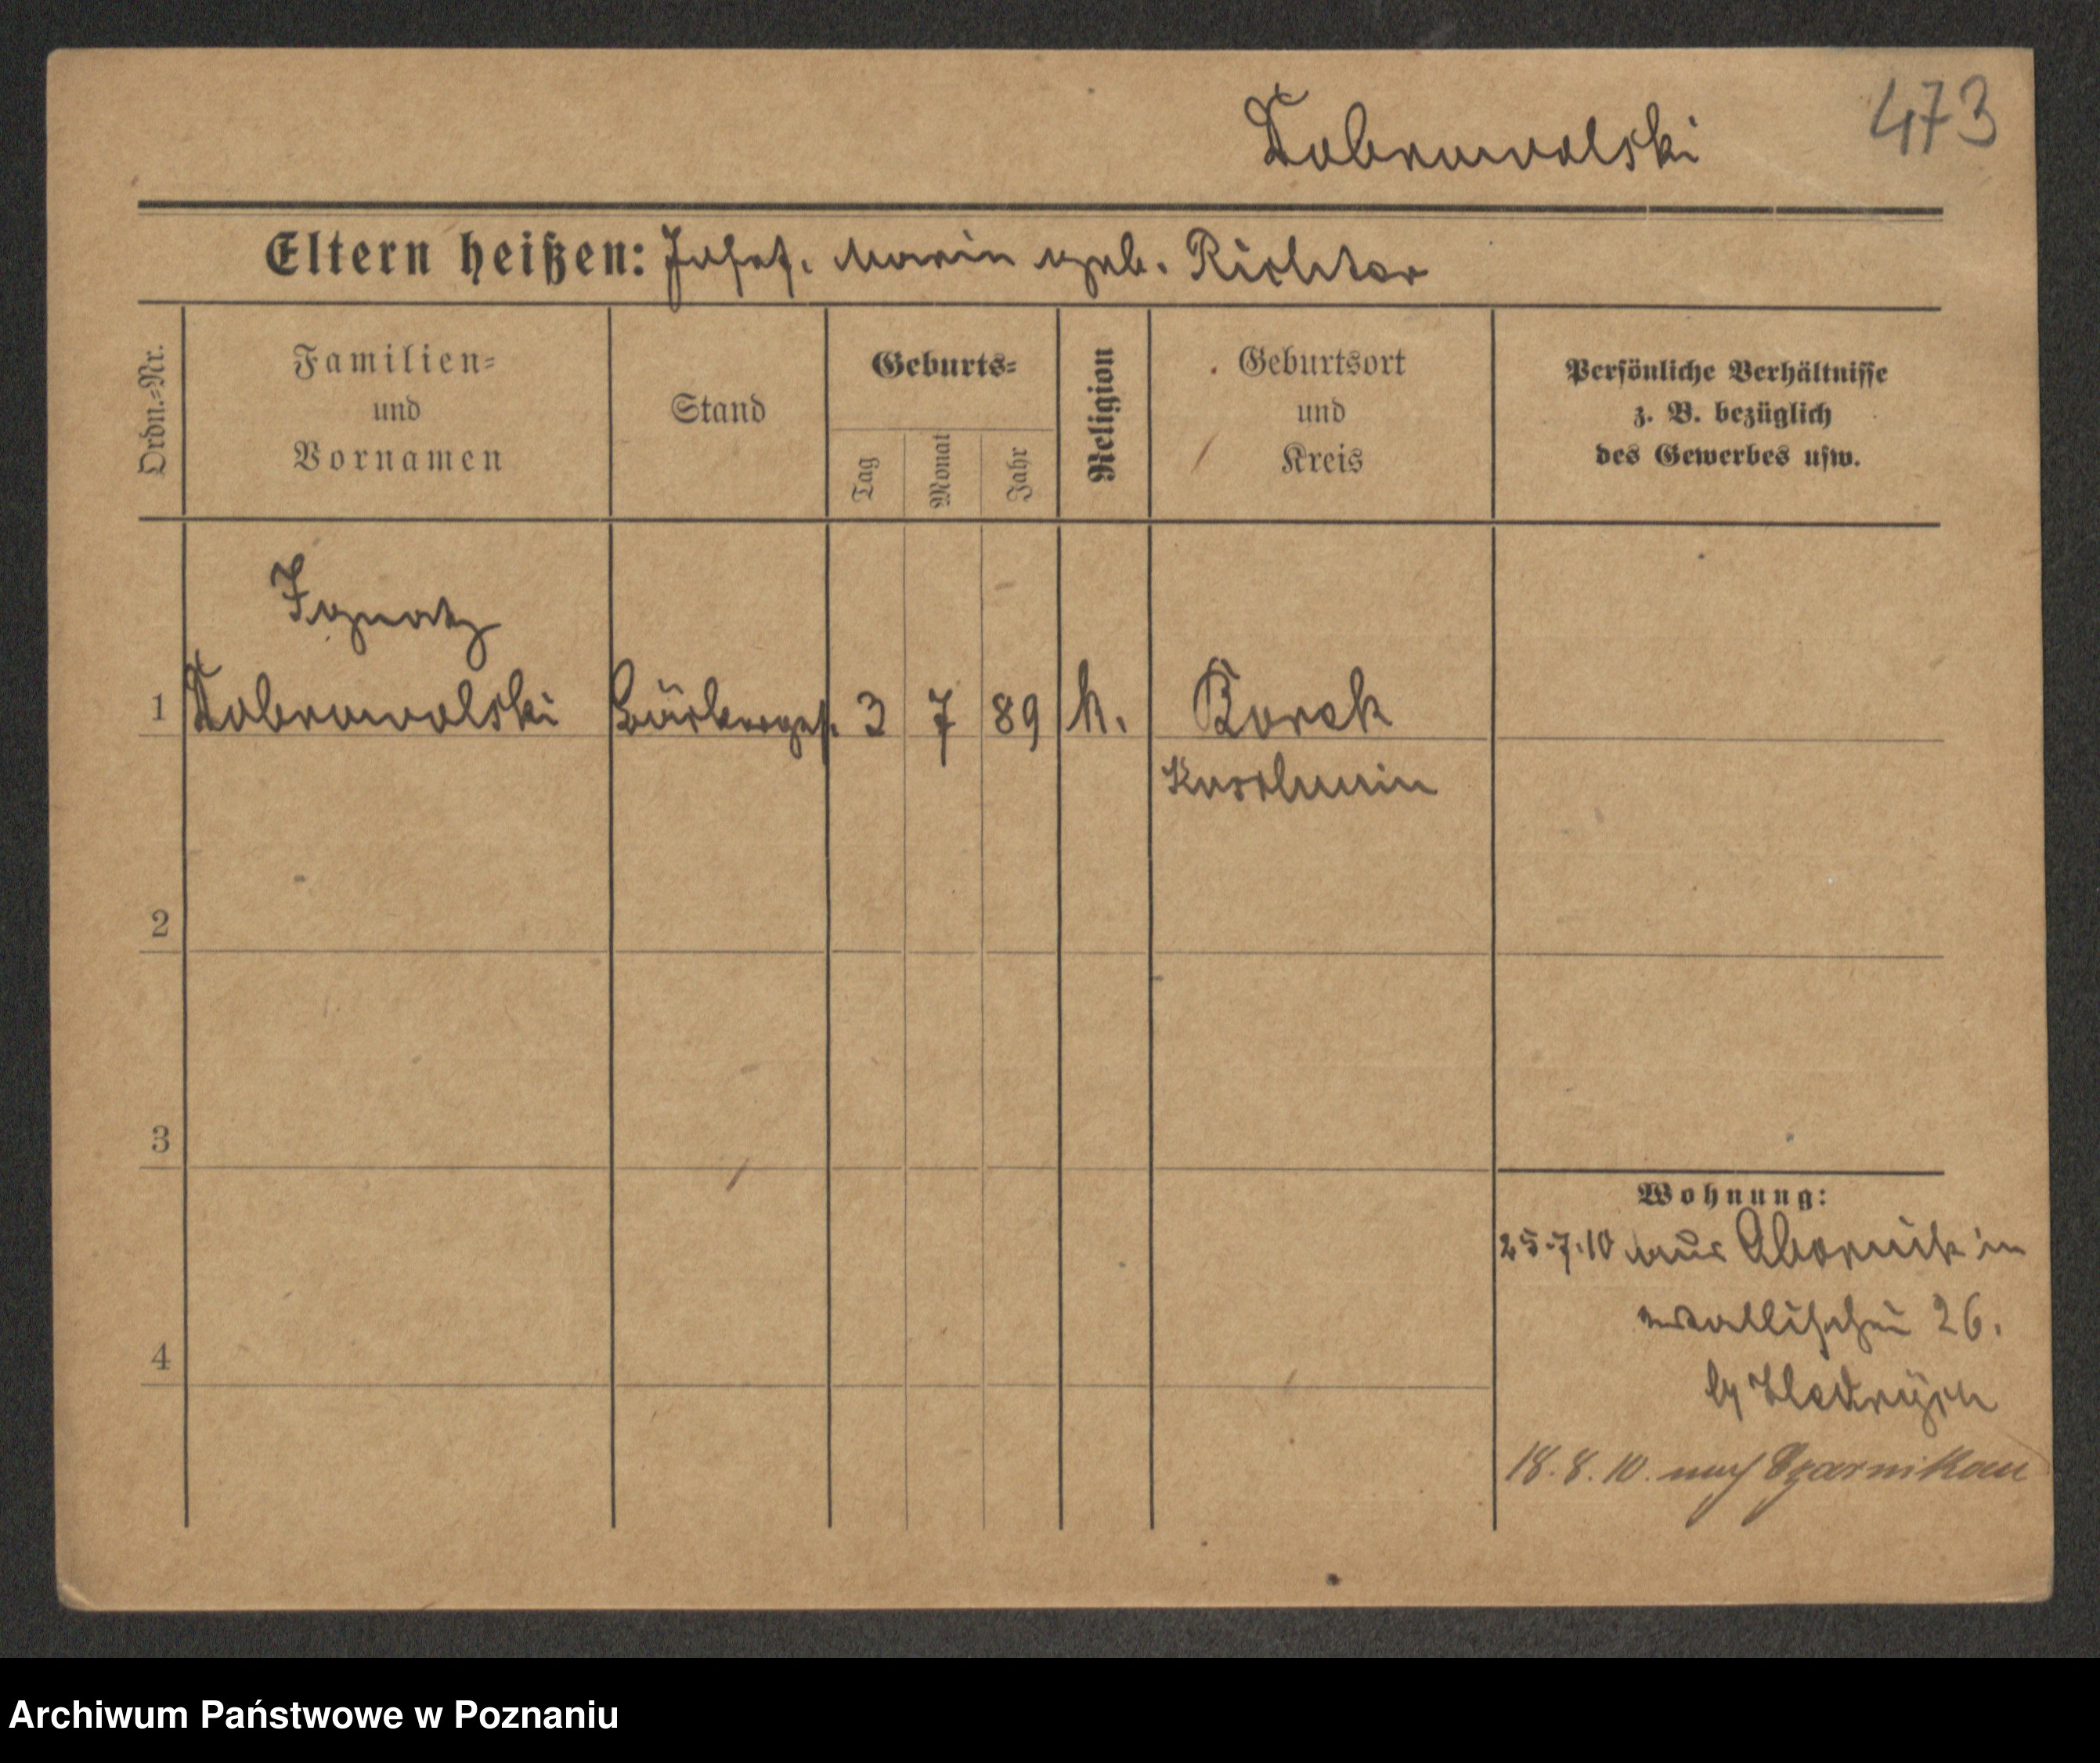 Dobrowolski
473
Eltern heißen: Josef. Marie geb. Richter
Ordn.=Nr.
Familien=
und
Vornamen
Stand
Geburts=
Tag
Monat
Jahr
Religion
Geburtsort
und
Kreis
Persönliche Verhältnisse
z. B. bezüglich
des Gewerbes usw.
Ignatz
1 Dobrowolski Bäckerges. 3 7 89 k. Borek
Koschmin
2
3
4
Wohnung:
25.7.10 aus Obornik in
Wallischei 26.
b/
18.8.10. nach Czarnikau
Archiwum Państwowe w Poznaniu